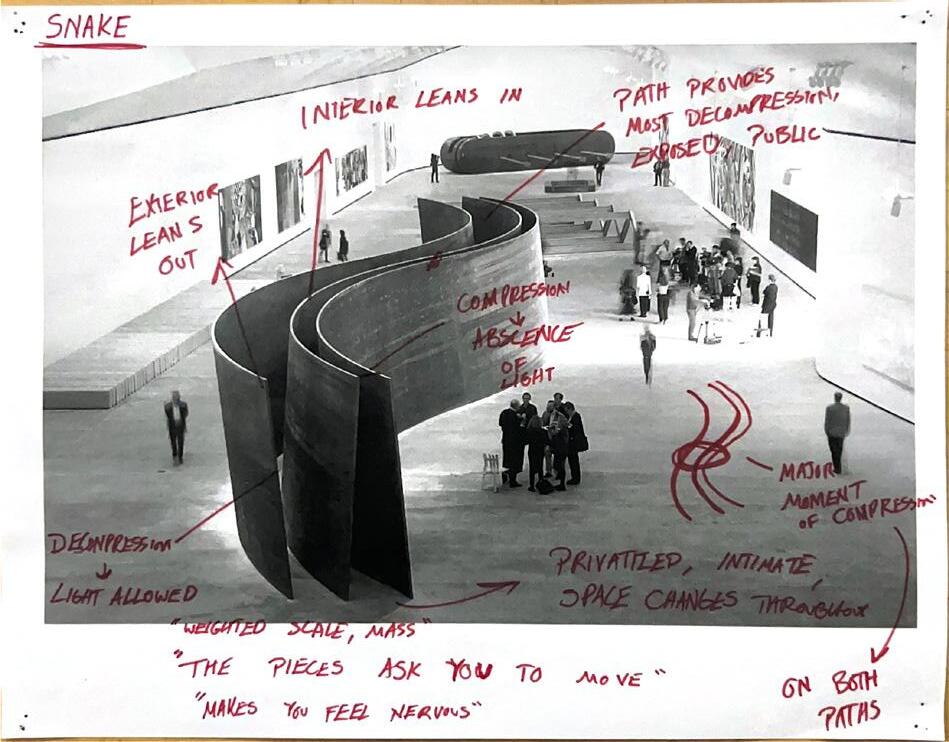 SNAKE
INTERIOR LEANS IN
PATH PROVIDES
MOST DECOMPRESSION,
EXPOSED, PUBLIC
EXTERIOR
LEANS
OUT
COMPRESSION
↓
ABSCENCE
OF
LIGHT
MAJOR
MOMENT
OF COMPRESSION
DECOMPRESSION
↓
LIGHT ALLOWED
PRIVATIZED, INTIMATE,
SPACE CHANGES THROUGHOUT
"WEIGHTED SCALE, MASS"
"THE PIECES ASK YOU TO MOVE"
"MAKES YOU FEEL NERVOUS"
ON BOTH
PATHS